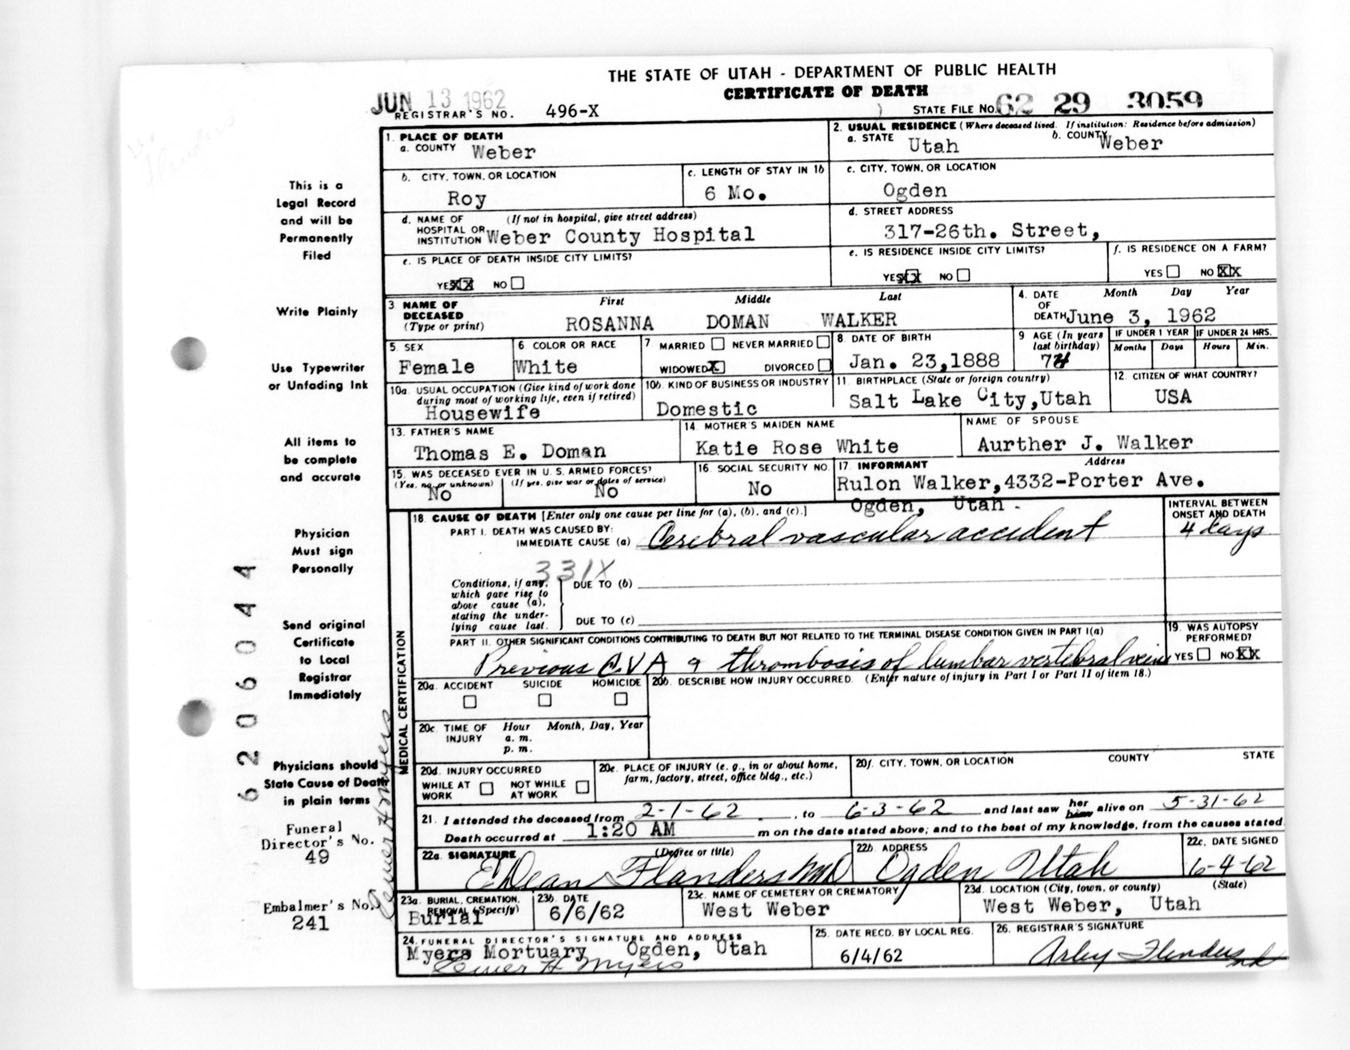 THE STATE OF UTAH - DEPARTMENT OF PUBLIC HEALTH
CERTIFICATE OF DEATH
JUN 13 1962
REGISTRAR'S NO. 496-X
STATE FILE NO. 62 29 3059
1. PLACE OF DEATH
a. COUNTY Weber
2. USUAL RESIDENCE (Where deceased lived. If institution: Residence before admission)
a. STATE Utah b. COUNTY Weber
b. CITY, TOWN, OR LOCATION
Roy
c. LENGTH OF STAY IN 1b
6 Mo.
c. CITY, TOWN, OR LOCATION
Ogden
d. NAME OF HOSPITAL OR INSTITUTION (If not in hospital, give street address)
Weber County Hospital
d. STREET ADDRESS
317-26th. Street,
e. IS PLACE OF DEATH INSIDE CITY LIMITS?
YES XX NO
e. IS RESIDENCE INSIDE CITY LIMITS?
YES XX NO
f. IS RESIDENCE ON A FARM?
YES NO XX
3. NAME OF DECEASED (Type or print)
First Middle Last
ROSANNA DOMAN WALKER
4. DATE OF DEATH Month Day Year
June 3, 1962
5. SEX
Female
6. COLOR OR RACE
White
7. MARRIED NEVER MARRIED
WIDOWED X DIVORCED
8. DATE OF BIRTH
Jan. 23,1888
9. AGE (In years last birthday)
74
IF UNDER 1 YEAR IF UNDER 24 HRS.
Months Days Hours Min.
10a. USUAL OCCUPATION (Give kind of work done during most of working life, even if retired)
Housewife
10b. KIND OF BUSINESS OR INDUSTRY
Domestic
11. BIRTHPLACE (State or foreign country)
Salt Lake City,Utah
12. CITIZEN OF WHAT COUNTRY?
USA
13. FATHER'S NAME
Thomas E. Doman
14. MOTHER'S MAIDEN NAME
Katie Rose White
NAME OF SPOUSE
Aurther J. Walker
15. WAS DECEASED EVER IN U.S. ARMED FORCES?
(Yes, no, or unknown) (If yes, give war or dates of service)
No No
16. SOCIAL SECURITY NO.
No
17. INFORMANT Address
Rulon Walker,4332-Porter Ave.
Ogden, Utah
18. CAUSE OF DEATH [Enter only one cause per line for (a), (b), and (c).]
PART I. DEATH WAS CAUSED BY:
IMMEDIATE CAUSE (a) Cerebral vascular accident
INTERVAL BETWEEN ONSET AND DEATH
4 days
331X
Conditions, if any, which gave rise to above cause (a), stating the underlying cause last.
DUE TO (b)
DUE TO (c)
PART II. OTHER SIGNIFICANT CONDITIONS CONTRIBUTING TO DEATH BUT NOT RELATED TO THE TERMINAL DISEASE CONDITION GIVEN IN PART I(a)
Previous C.V.A & thrombosis of lumbar vertebral veins
19. WAS AUTOPSY PERFORMED?
YES NO XX
20a. ACCIDENT SUICIDE HOMICIDE
20b. DESCRIBE HOW INJURY OCCURRED. (Enter nature of injury in Part I or Part II of item 18.)
20c. TIME OF INJURY Hour Month, Day, Year
a. m.
p. m.
20d. INJURY OCCURRED
WHILE AT WORK NOT WHILE AT WORK
20e. PLACE OF INJURY (e. g., in or about home, farm, factory, street, office bldg., etc.)
20f. CITY, TOWN, OR LOCATION COUNTY STATE
21. I attended the deceased from 2-1-62, to 6-3-62 and last saw her him alive on 5-31-62
Death occurred at 1:20 AM m on the date stated above; and to the best of my knowledge, from the causes stated
22a. SIGNATURE (Degree or title)
E Dean Flanders MD
22b. ADDRESS
Ogden Utah
22c. DATE SIGNED
6-4-62
23a. BURIAL, CREMATION, REMOVAL (Specify)
Burial
23b. DATE
6/6/62
23c. NAME OF CEMETERY OR CREMATORY
West Weber
23d. LOCATION (City, town, or county) (State)
West Weber, Utah
24. FUNERAL DIRECTOR'S SIGNATURE AND ADDRESS
Myers Mortuary Ogden, Utah
Elmer H Myers
25. DATE RECD. BY LOCAL REG.
6/4/62
26. REGISTRAR'S SIGNATURE
MEDICAL CERTIFICATION
This is a
Legal Record
and will be
Permanently
Filed
Write Plainly
Use Typewriter
or Unfading Ink
All items to
be complete
and accurate
Physician
Must sign
Personally
Send original
Certificate
to Local
Registrar
Immediately
Physicians should
State Cause of Death
in plain terms
Funeral
Director's No.
49
Embalmer's No.
241
Elmer H Myers
6206044